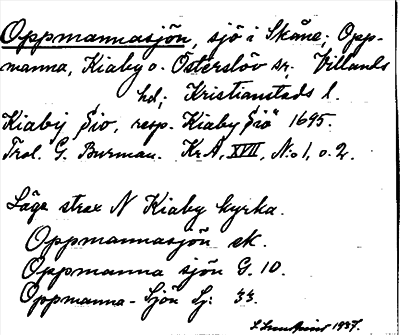 Oppmannasjön, sjö i Skåne; Opp-
manna, Kiaby o. Österslöv sr, Villands
hd; Kristianstads l.
Kiaby Sio, resp. Kiaby Siö" 1695.
Trol. G. Burman. Kr.A, XVII, N:o 1, o. 2.
Läge strax N Kiaby kyrka.
Oppmannasjön ek.
Oppmanna sjön G. 10.
Oppmanna-Sjön Lj: 33.
1937.